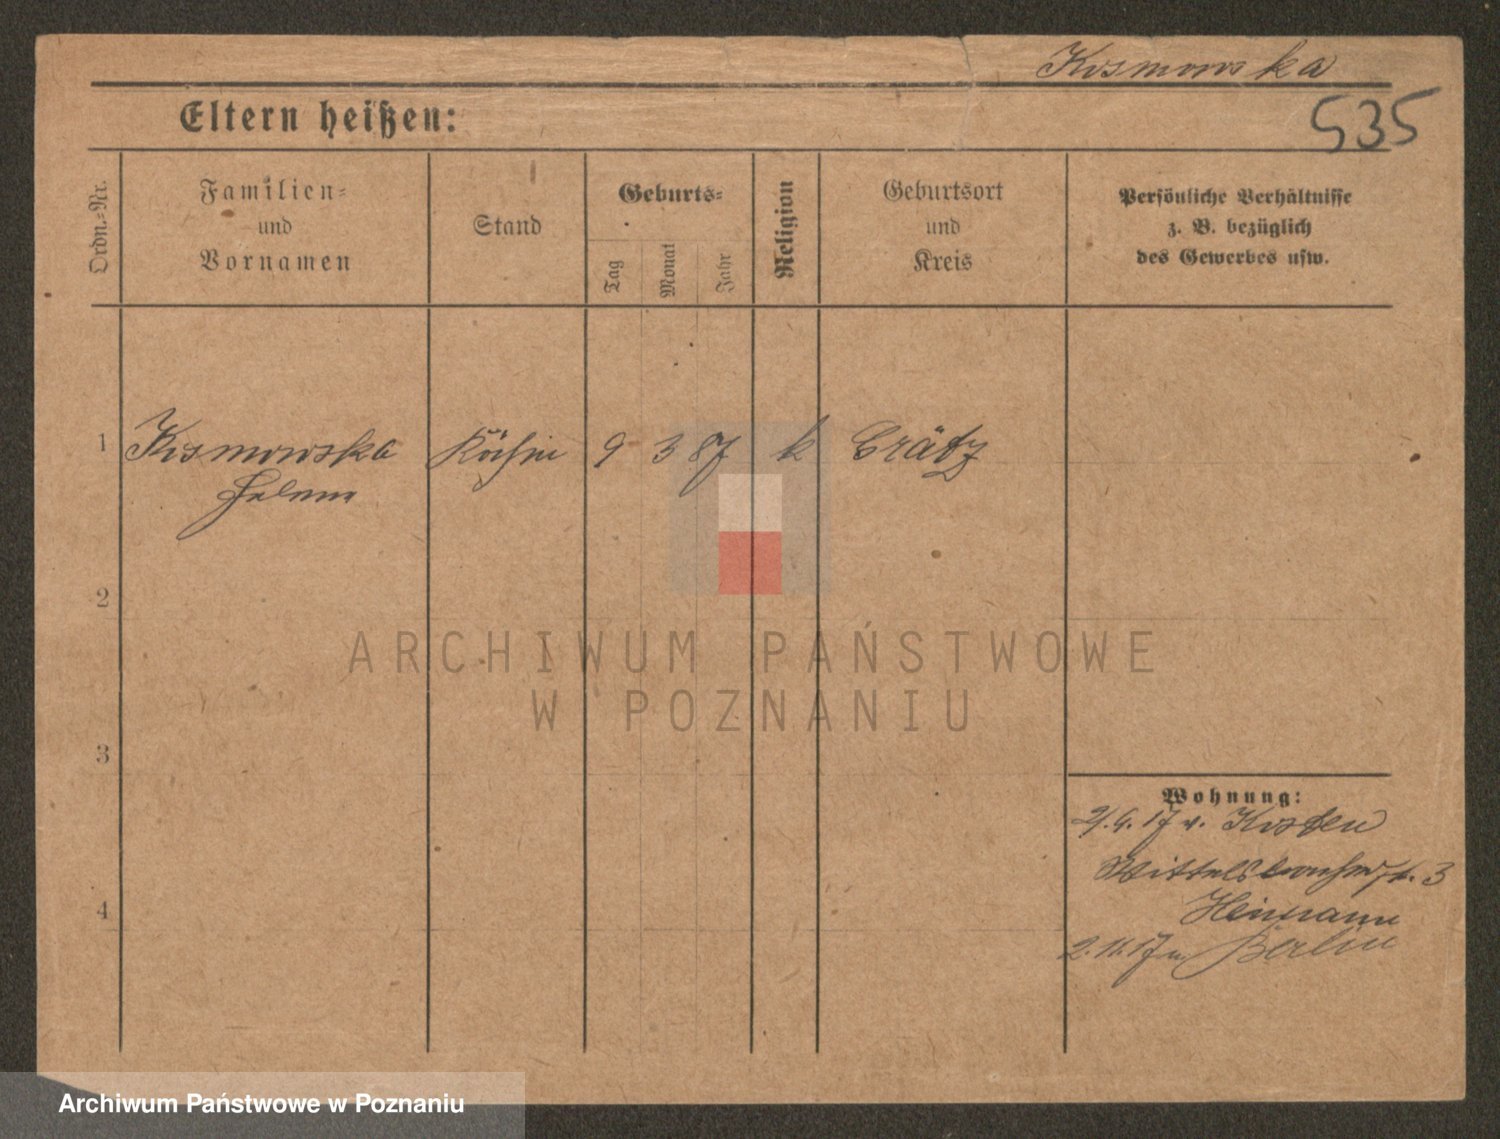 Kosmowska
535
Eltern heißen:
Ordn.-Nr.
Familien-
und
Vornamen
Stand
Geburts-
Tag
Monat
Jahr
Religion
Geburtsort
und
Kreis
Persönliche Verhältnisse
z. B. bezüglich
des Gewerbes usw.
1 Kosmowska Köchin 9 3 87 k Grätz
Helene
2
3
4
Wohnung:
2/.4.17 v. Kosten
Wittelsbacherst. 3
Heimann
2.11.17 n. Berlin
ARCHIWUM PAŃSTWOWE
W POZNANIU
Archiwum Państwowe w Poznaniu